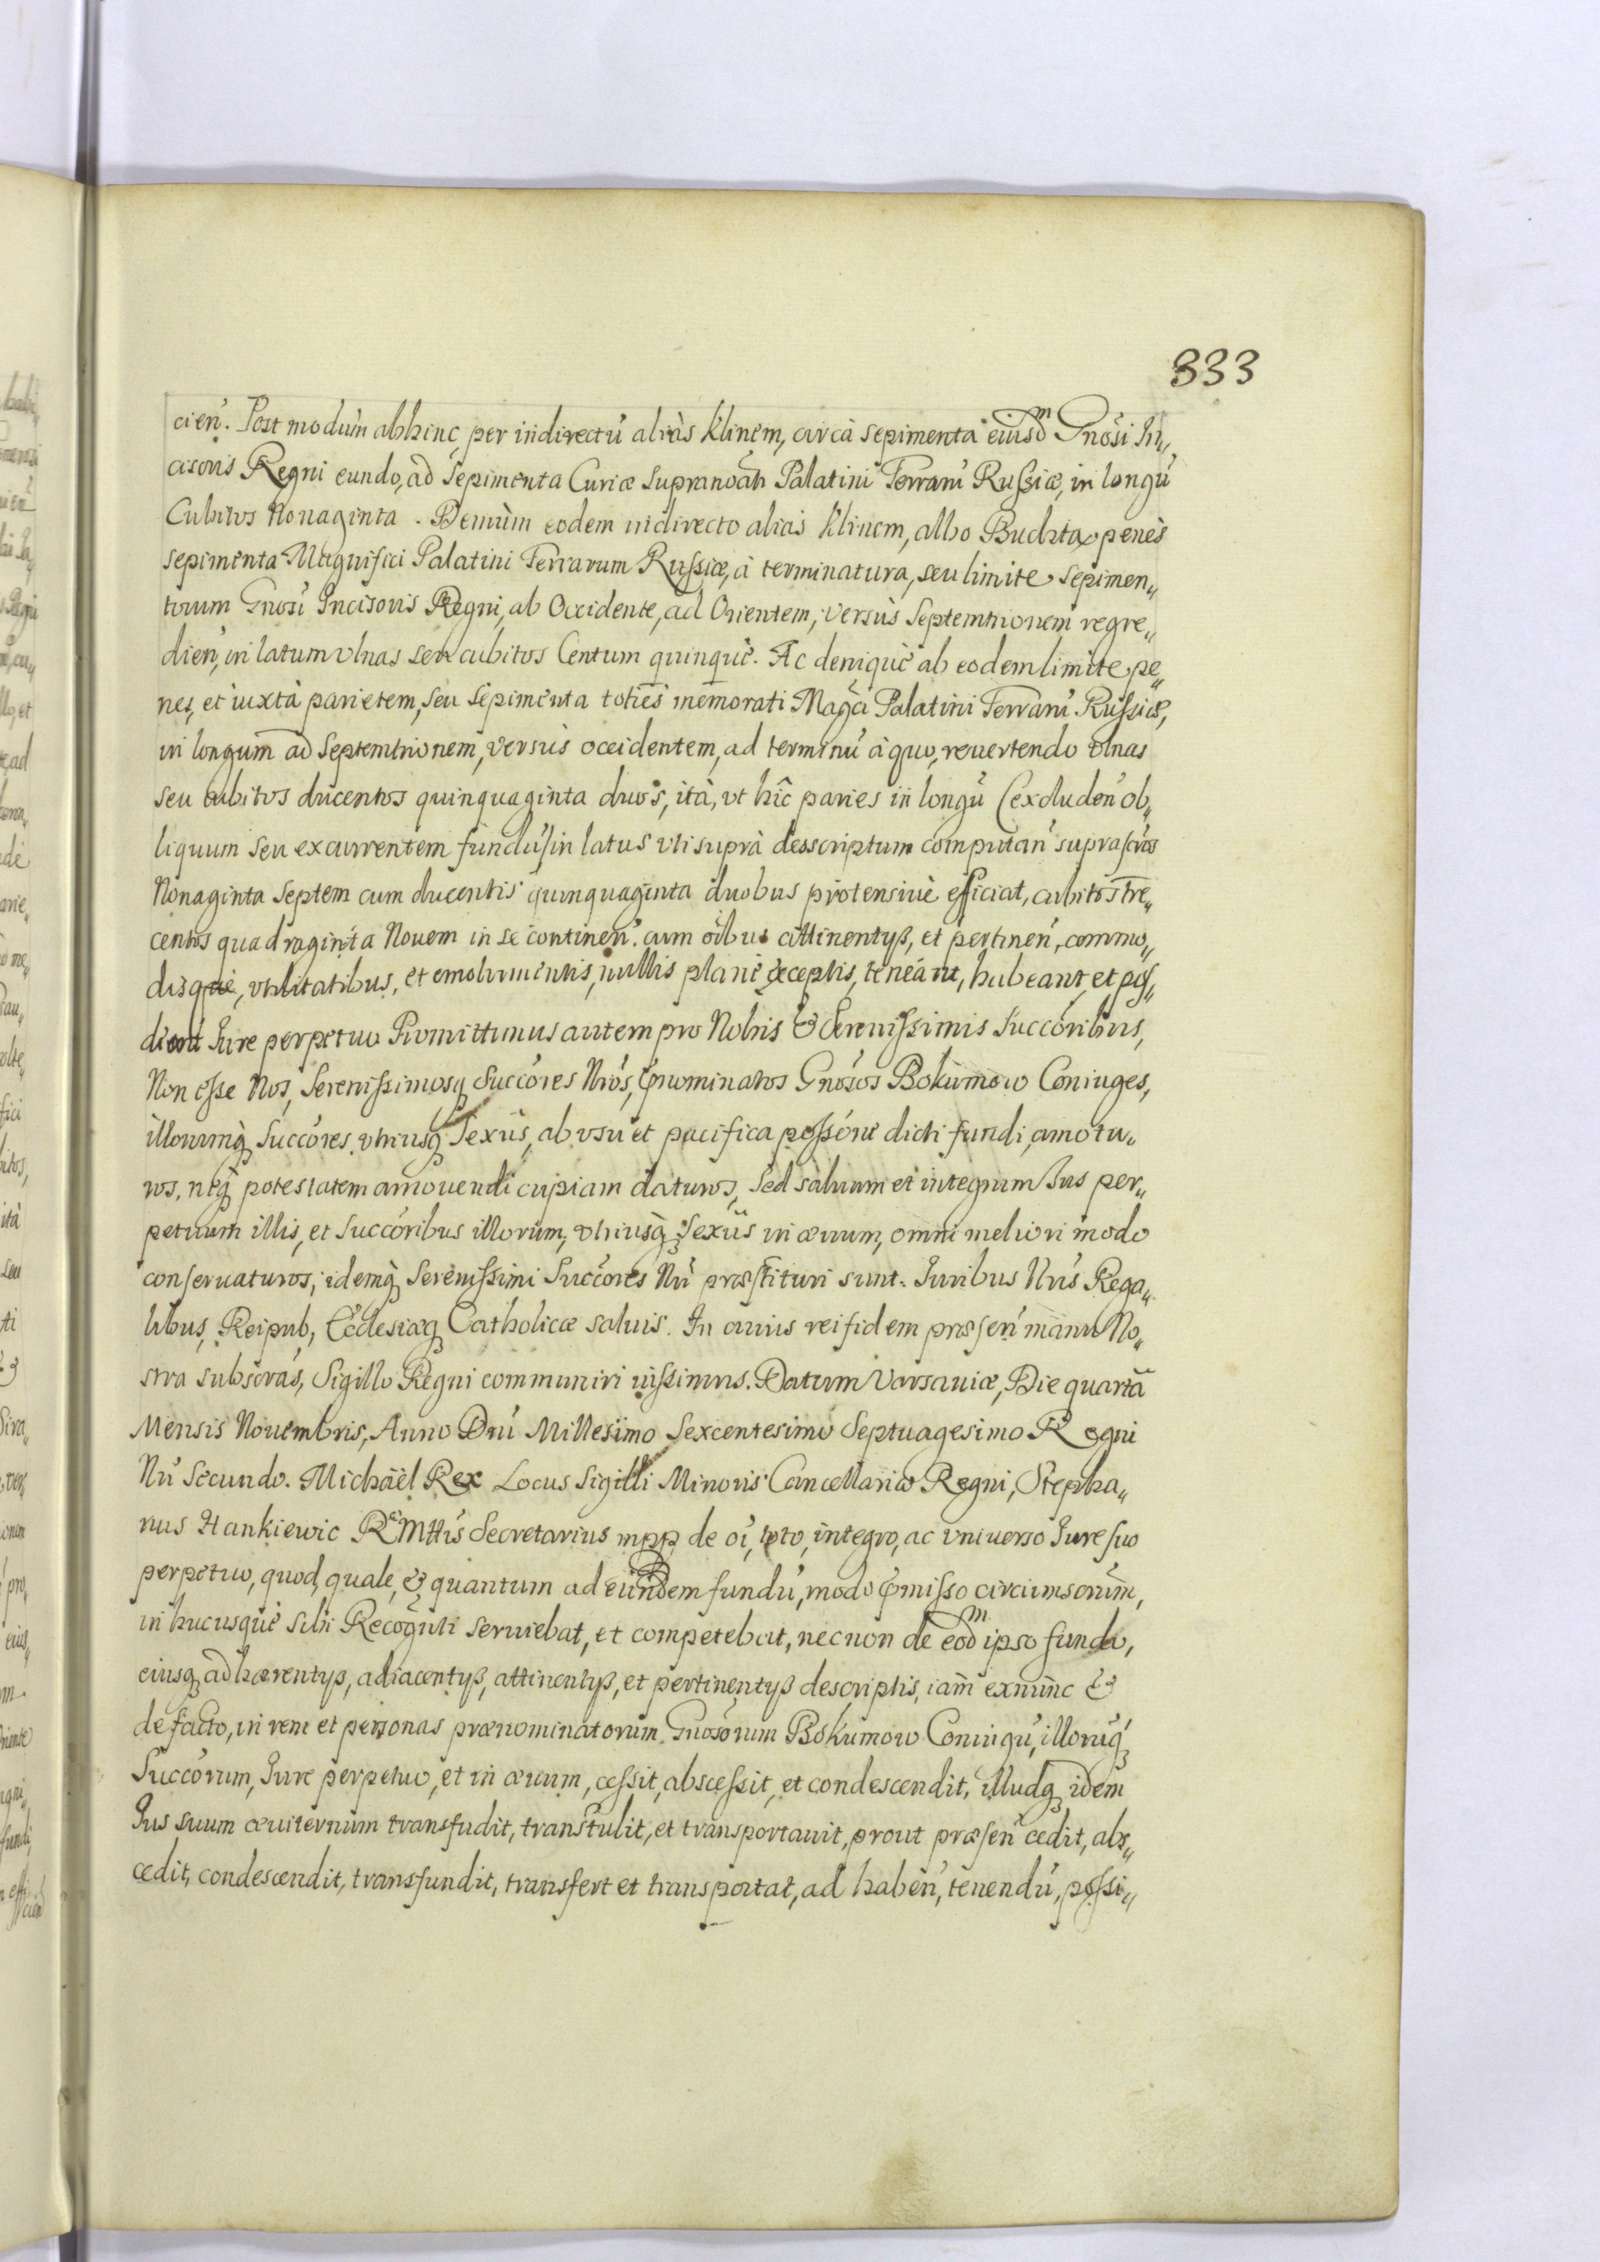 333
cien̄. Post modum abhinc, per indirectū aliàs Klinem, circà sepimenta eiusdm Gnosi In„
cisoris Regni eundo, ad Sepimenta Curiæ Supranoāti Palatini Terraru̇ Russiæ, in longū
Cubitos Nonaginta. Demùm eodem indirecto alias Klinem, albo Buchta penès
sepimenta Magnifici Palatini Terrarum Russiæ, à terminatura, seu limite sepimen„
torum Gnosi Incisoris Regni, ab Occidente, ad Orientem, versùs Septemtrionem regre„
dien̄, in latum vlnas seu cubitos Centum quinquè. Ac deniquè ab eodem limite pe„
nes, et iuxtà parietem, seu sepimenta totiēs memorati Magci Palatini Terraru̇ Russiæ,
in longum ad Septemtrionem, versùs occidentem, ad terminū à quo, reuertendo vlnas
seu cubitos ducentos quinquaginta duos, ità, vt hîc paries in longū (excluden̄ ob„
liquum seu excurrentem fundu̇ in latus vti suprà desscriptum computan̄ suprascr̄os
Nonaginta Septem cum ducentis quinquaginta duobus protensiuè efficiat, cubitos Tre„
centos quadraginta Nouem in se continen̄. cum oībus attinentyß, et pertinen̄, commo„
disquè, vtilitatibus, et emolumentis, nullis planè exceptis, teneant, habeant, et pos„
dient Iure perpetuo Promittimus autem pro Nobis & Serenissimis Succoribus,
Non esse Nos, Serenissimosq Succores Nrōs, prænominatos Gnosos Bokumow Coniuges,
illorumq Succores vtriusq Sexus, ab vsu et pacifica possōne dicti fundi, amotu„
ros, neq potestatem amouendi cupiam daturos, Sed saluum et integrum Jus per„
petuum illis, et Succoribus illorum, vtriusq Sexus in æuum, omni meliori modo
conseruaturos, idemq Serenissimi Succores Nri præstituri sunt. Iuribus Nris Rega„
libus, Reipub, Ecclesiæq Catholicæ saluis. In cuius rei fidem præsen̄ manu No„
stra subscras, Sigillo Regni communiri iussimus. Datum Varsauiæ, Die quarta
Mensis Nouembris, Anno Dni Millesimo Sexcentesimo Septuagesimo Regni
Nri Secundo. Michäel Rex Locus Sigilli Minoris Cancellariæ Regni, Stepha„
nus Hankiewic Ræ Mttis Secretarius mpp de oi, toto, integro, ac vniuerso Iure suo
perpetuo, quod, quale, & quantum ad eundem fundū, modo præmisso circumscr̄um,
in hucusquè sibi Recogn̄ti seruiebat, et competebat, necnon de eodm ipso fundo,
eiusq adhærentyß, adiacentyß, attinentyß, et pertinentyß descriptis, iam exnunc &
de facto, in rem et personas prænominatorum Gnosorum Bokumow Coniugū, illoruq
Succorum, Iure perpetuo, et in æuum, cessit, abscessit, et condescendit, illudq idem
Ius suum æuiternum transfudit, transtulit, et transportauit, prout præsen̄ cedit, abs„
cedit, condescendit, transfundit, transfert et transportat, ad haben̄, tenendū, possi„